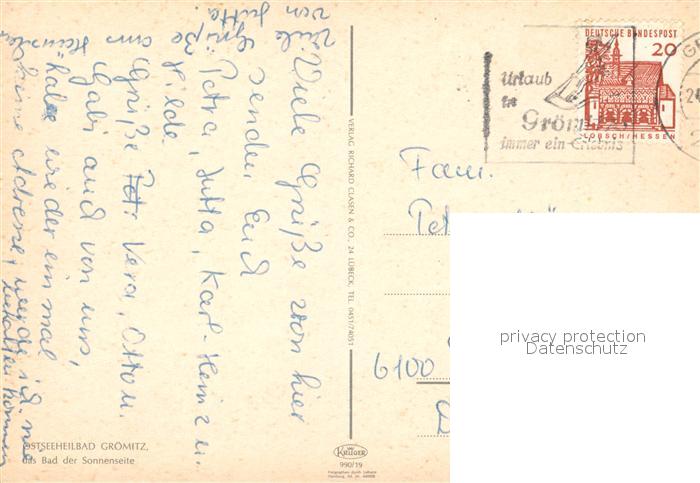 Viele Grüße von hier
senden Euch
Petra, Jutta, Karl-Heinz u.
Hilde.
Grüße Vera, Otto u.
Gabi auch von uns,
habe wieder einmal
keine Adresse,
Viele
Grüße
von Jutta
VERLAG RICHARD CLASEN & CO., 24 LÜBECK, TEL 0451/74051
OSTSEEHEILBAD GRÖMITZ,
das Bad der Sonnenseite
KRÜGER
990/19
DEUTSCHE BUNDESPOST
20
LORSCH/HESSEN
Urlaub
in
Gröm
immer ein Erlebnis
Fam.
6100
privacy protection
Datenschutz